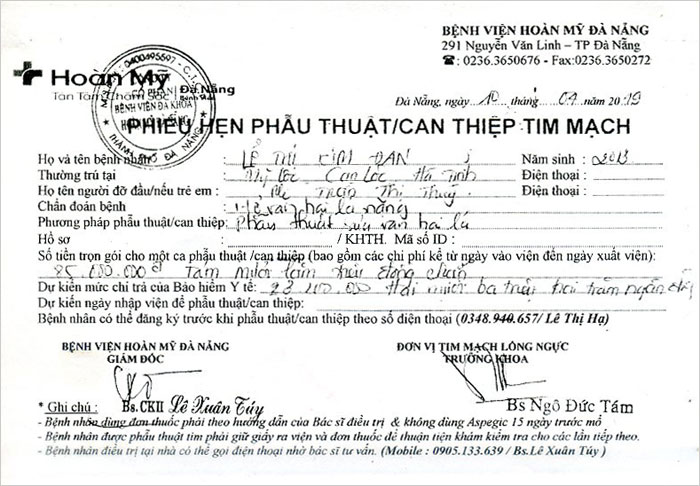 BỆNH VIỆN HOÀN MỸ ĐÀ NẴNG
291 Nguyễn Văn Linh – TP Đà Nẵng
☎: 0236.3650676 - Fax:0236.3650272
Hoàn Mỹ Đà Nẵng
Tận Tâm Chăm Sóc
CỔ PHẦN
BỆNH VIỆN ĐA KHOA
THÀNH PHỐ ĐÀ NẴNG
Đà Nẵng, ngày 10 tháng 09 năm 2019
PHIẾU HẸN PHẪU THUẬT/CAN THIỆP TIM MẠCH
Họ và tên bệnh nhân: LÊ THỊ KIM ĐAN Năm sinh : 2013
Thường trú tại Mỹ Lộc Can Lộc Hà Tĩnh Điện thoại :
Họ tên người đỡ đầu/nếu trẻ em : Thị Thuỷ Điện thoại :
Chẩn đoán bệnh : van hai lá nặng
Phương pháp phẫu thuật/can thiệp: Phẫu thuật sửa van hai lá
Hồ sơ : / KHTH. Mã số ID :
Số tiền trọn gói cho một ca phẫu thuật /can thiệp (bao gồm các chi phí kể từ ngày vào viện đến ngày xuất viện):
85.000.000đ Tám mươi lăm triệu đồng chẵn
Dự kiến mức chi trả của Bảo hiểm Y tế: Hai mươi ba triệu hai trăm ngàn
Dự kiến ngày nhập viện để phẫu thuật/can thiệp:
Bệnh nhân có thể đăng ký trước khi phẫu thuật/can thiệp theo số điện thoại (0348.940.657/ Lê Thị Hạ)
BỆNH VIỆN HOÀN MỸ ĐÀ NẴNG
GIÁM ĐỐC
ĐƠN VỊ TIM MẠCH LỒNG NGỰC
TRƯỞNG KHOA
Bs.CKII Lê Xuân Túy
Bs Ngô Đức Tám
* Ghi chú :
- Bệnh nhân dùng đơn thuốc phải theo hướng dẫn của Bác sĩ điều trị & không dùng Aspegic 15 ngày trước mổ
- Bệnh nhân được phẫu thuật tim phải giữ giấy ra viện và đơn thuốc để thuận tiện khám kiểm tra cho các lần tiếp theo.
- Bệnh nhân điều trị tại nhà có thể gọi điện thoại nhờ bác sĩ tư vấn. (Mobile : 0905.133.639 / Bs.Lê Xuân Túy )